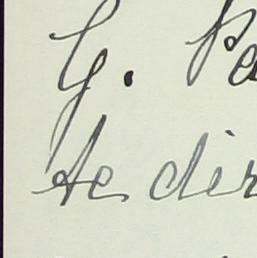 G. Pe
te dir